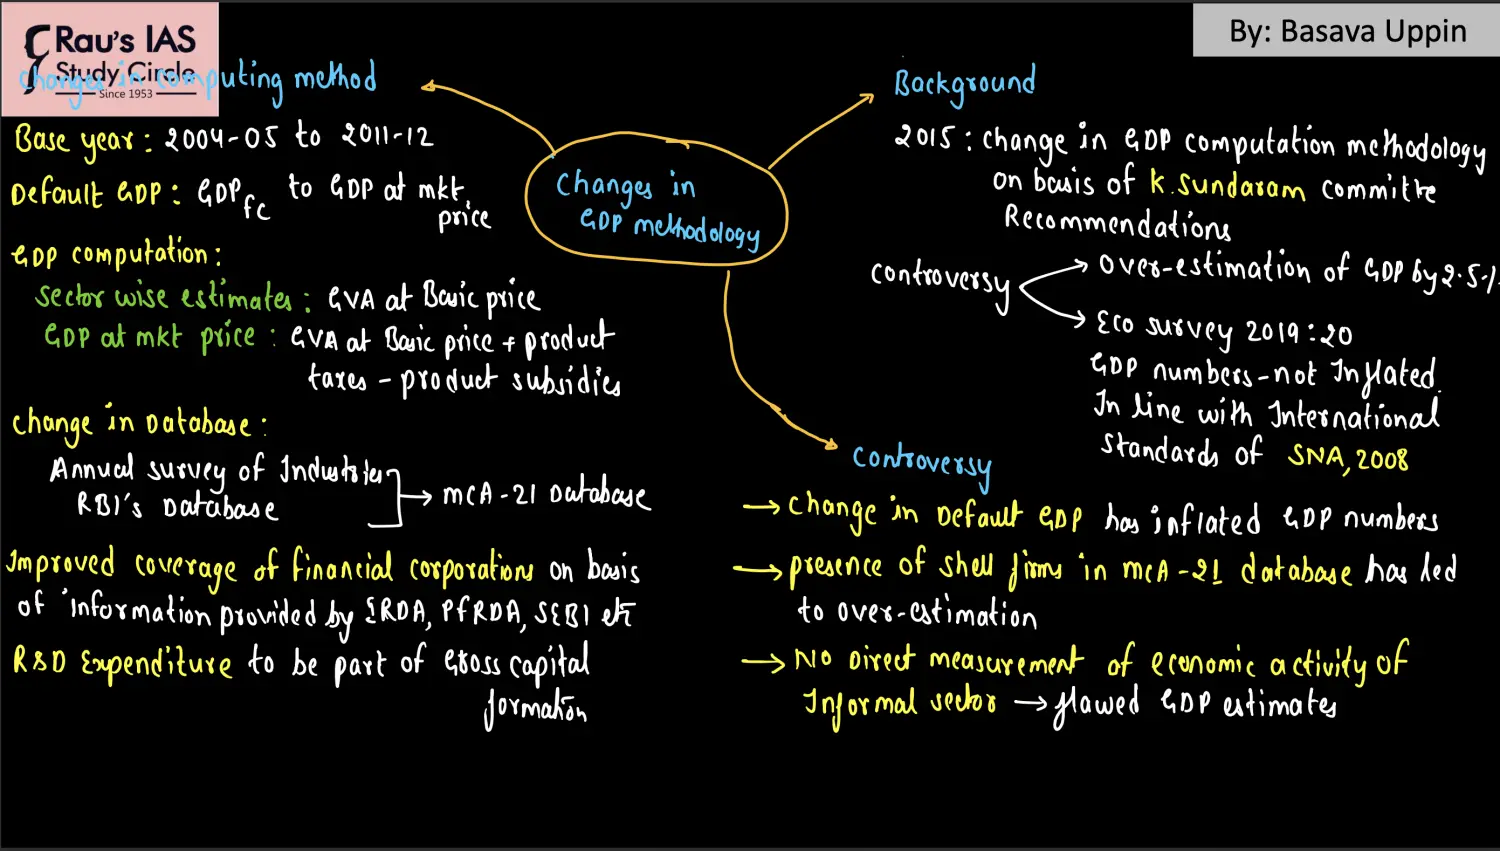 Rau's IAS
Study Circle
Since 1953
By: Basava Uppin
Changes in
GDP methodology
Changes in computing method
Base year: 2004-05 to 2011-12
Default GDP: GDP fc to GDP at mkt
price
GDP computation:
Sector wise estimates: GVA at Basic price
GDP at mkt price: GVA at Basic price + product
taxes - product subsidies
Change in Database:
Annual survey of Industries
RBI's Database
→ MCA-21 Database
Improved coverage of financial corporations on basis
of information provided by IRDA, PFRDA, SEBI etc
R&D Expenditure to be part of Gross capital
formation
Background
2015: change in GDP computation methodology
on basis of K. Sundaram committe
Recommendations
controversy → over-estimation of GDP by 2.5%
→ Eco survey 2019:20
GDP numbers - not Inflated.
In line with International
standards of SNA, 2008
controversy
→ change in Default GDP has inflated GDP numbers
→ presence of shell firms in MCA-21 database has led
to over-estimation
→ No Direct measurement of economic activity of
Informal sector → flawed GDP estimates